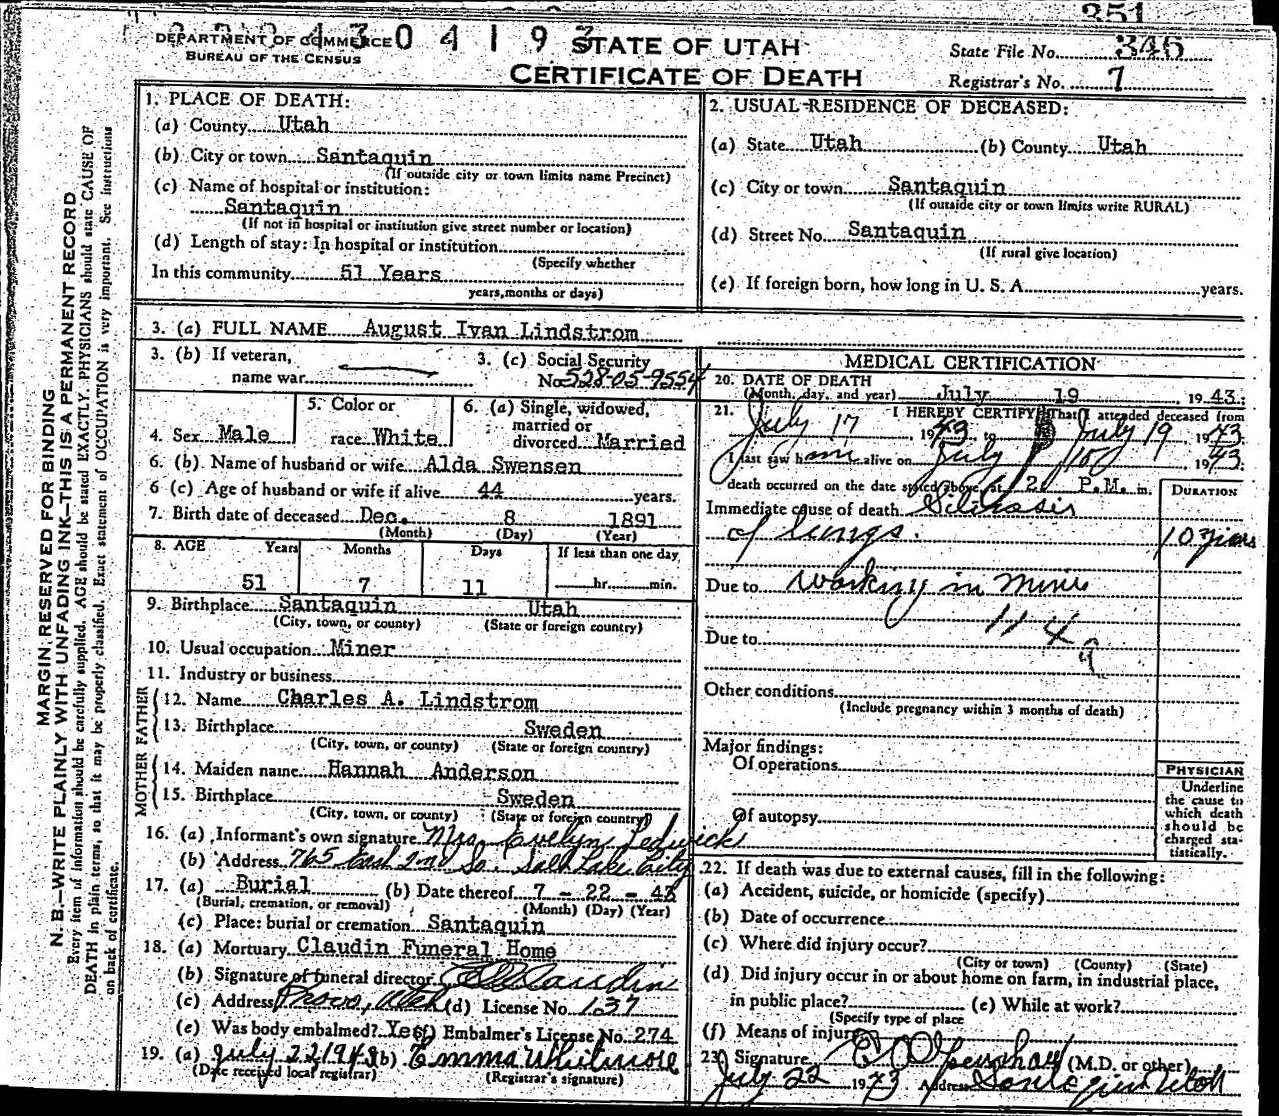 351
DEPARTMENT OF COMMERCE
BUREAU OF THE CENSUS
0 4 1 9
STATE OF UTAH
CERTIFICATE OF DEATH
State File No. 346
Registrar's No. 7
MARGIN RESERVED FOR BINDING
N. B.—WRITE PLAINLY WITH UNFADING INK—THIS IS A PERMANENT RECORD
Every item of information should be carefully supplied. AGE should be stated EXACTLY. PHYSICIANS should state CAUSE OF
DEATH in plain terms, so that it may be properly classified. Exact statement of OCCUPATION is very important. See instructions
on back of certificate.
1. PLACE OF DEATH:
(a) County Utah
(b) City or town Santaquin
(If outside city or town limits name Precinct)
(c) Name of hospital or institution:
Santaquin
(If not in hospital or institution give street number or location)
(d) Length of stay: In hospital or institution
(Specify whether
In this community 51 Years
years, months or days)
2. USUAL RESIDENCE OF DECEASED:
(a) State Utah (b) County Utah
(c) City or town Santaquin
(If outside city or town limits write RURAL)
(d) Street No. Santaquin
(If rural give location)
(e) If foreign born, how long in U. S. A. years.
3. (a) FULL NAME August Ivan Lindstrom
3. (b) If veteran,
name war
3. (c) Social Security
No. 528-05-9554
4. Sex Male
5. Color or
race White
6. (a) Single, widowed,
married or
divorced Married
6. (b) Name of husband or wife Alda Swensen
6 (c) Age of husband or wife if alive 44 years.
7. Birth date of deceased Dec. 8 1891
(Month) (Day) (Year)
8. AGE Years Months Days If less than one day
51 7 11 hr. min.
9. Birthplace Santaquin Utah
(City, town, or county) (State or foreign country)
10. Usual occupation Miner
11. Industry or business
FATHER
12. Name Charles A. Lindstrom
13. Birthplace Sweden
(City, town, or county) (State or foreign country)
MOTHER
14. Maiden name Hannah Anderson
15. Birthplace Sweden
(City, town, or county) (State or foreign country)
16. (a) Informant's own signature Mrs. Evelyn Ledwick
(b) Address 765 East 2nd So. Salt Lake City
17. (a) Burial (b) Date thereof 7 - 22 - 43
(Burial, cremation, or removal) (Month) (Day) (Year)
(c) Place: burial or cremation Santaquin
18. (a) Mortuary Claudin Funeral Home
(b) Signature of funeral director Claudin
(c) Address Provo, Utah (d) License No. 137
(e) Was body embalmed? Yes (f) Embalmer's License No. 274
19. (a) July 22 1943 (b) Emma Whitmore
(Date received local registrar) (Registrar's signature)
MEDICAL CERTIFICATION
20. DATE OF DEATH
(Month, day, and year) July 19 1943.
21. I HEREBY CERTIFY, That I attended deceased from
July 17, 1943 to July 19 1943.
I last saw him alive on July 1943.
death occurred on the date stated above, at 2 P.M. m.
DURATION
Immediate cause of death Silicosis
of lungs. 10 years
Due to working in mine
114
Due to
Other conditions
(Include pregnancy within 3 months of death)
Major findings:
Of operations
Of autopsy
PHYSICIAN
Underline
the cause to
which death
should be
charged sta-
tistically.
22. If death was due to external causes, fill in the following:
(a) Accident, suicide, or homicide (specify)
(b) Date of occurrence
(c) Where did injury occur?
(City or town) (County) (State)
(d) Did injury occur in or about home on farm, in industrial place,
in public place? (e) While at work?
(Specify type of place
(f) Means of injury
23. Signature (M.D. or other)
July 22 1943 Address Santaquin Utah